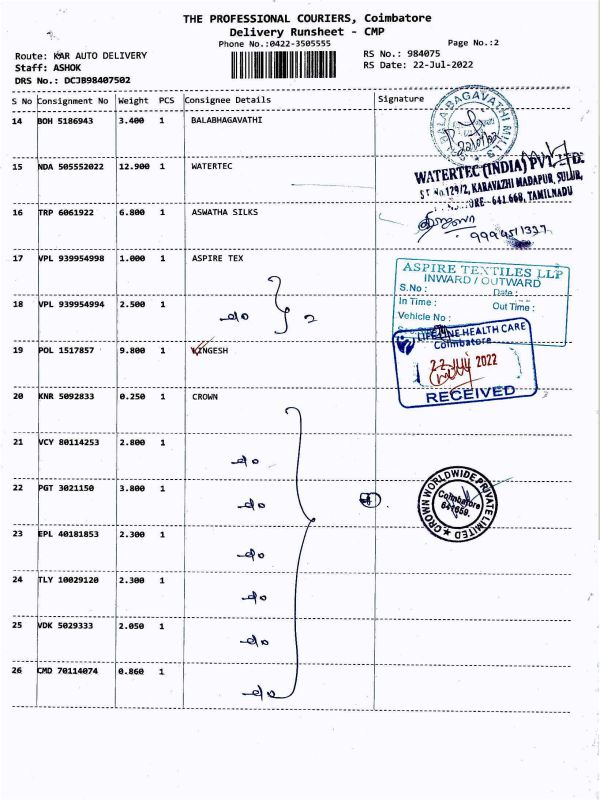 THE PROFESSIONAL COURIERS, Coimbatore
Delivery Runsheet - CMP
Phone No.:0422-3505555 Page No.:2
Route: KAR AUTO DELIVERY RS No.: 984075
Staff: ASHOK RS Date: 22-Jul-2022
DRS No.: DCJB98407502
S No Consignment No Weight PCS Consignee Details Signature
14 BOH 5186943 3.400 1 BALABHAGAVATHI
BALABAGAVATHI MILLS
15 NDA 505552022 12.900 1 WATERTEC
WATERTEC (INDIA) PVT. LTD.
S F No.129/2, KARAVAZHI MADAPUR, SULUR,
ORE - 641 668, TAMILNADU
16 TRP 6061922 6.800 1 ASWATHA SILKS
9994511327
17 VPL 939954998 1.000 1 ASPIRE TEX
ASPIRE TEXTILES LLP
INWARD / OUTWARD
S.No : Date :
In Time : Out Time :
Vehicle No :
18 VPL 939954994 2.500 1
2
LIFELINE HEALTH CARE
Coimbatore
22 JUL 2022
RECEIVED
19 POL 1517857 9.800 1 KINGESH
20 KNR 5092833 0.250 1 CROWN
21 VCY 80114253 2.800 1
22 PGT 3021150 3.800 1
CROWN WORLDWIDE PRIVATE LIMITED
Coimbatore
641659.
23 EPL 40181853 2.300 1
24 TLY 10029120 2.300 1
25 VDK 5029333 2.050 1
26 CMD 70114074 0.860 1